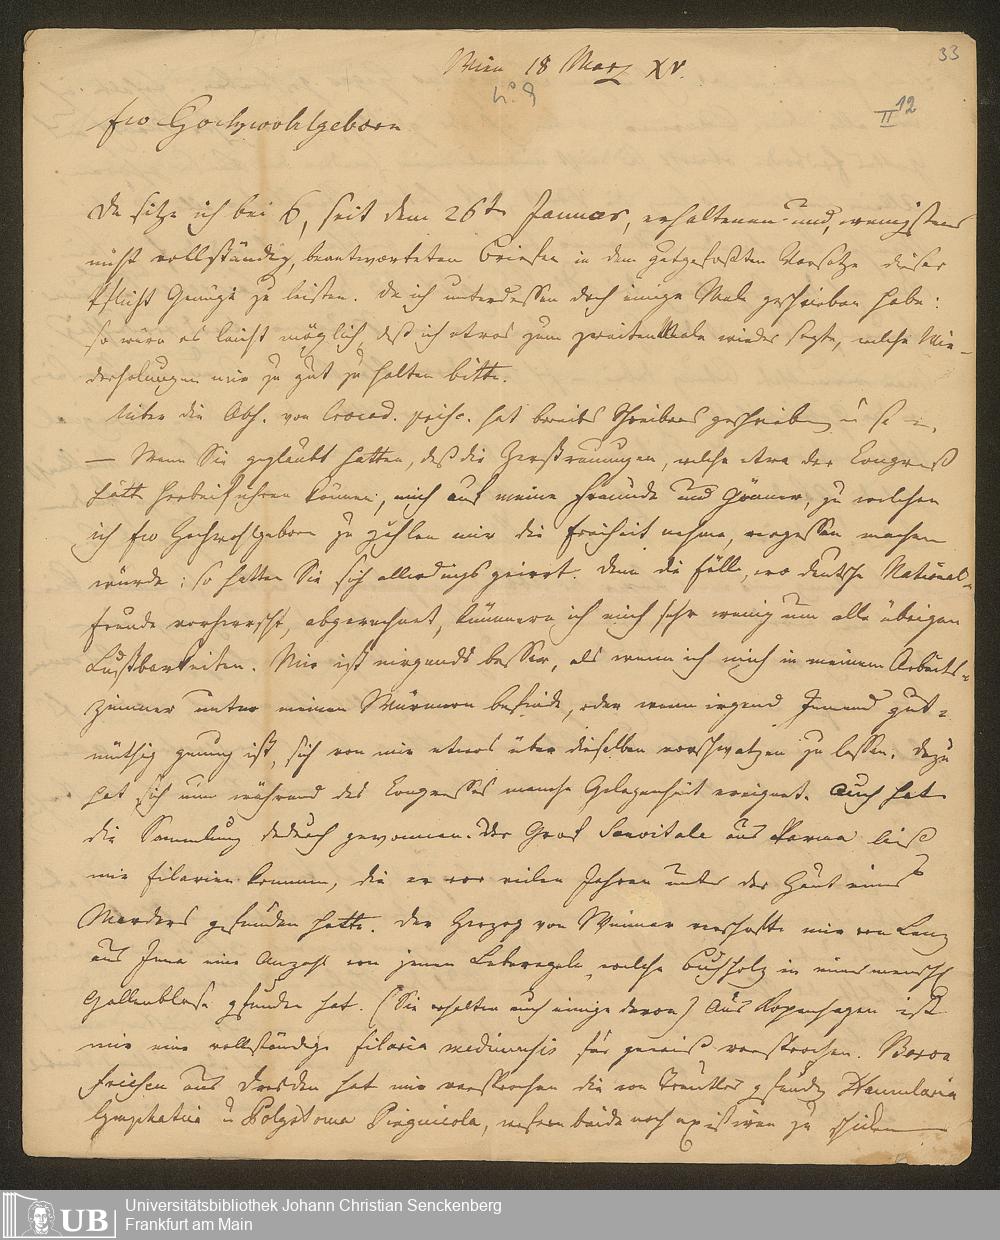 33
Wien 18 März XV.
No. 9
II 12
Ew Hochwohlgeborn
Da sitze ich bei 6, seit dem 26t Januar, erhaltenen und, wenigstens
nicht vollständig, beantworteten Briefen in dem gutgefaßten Vorsatze dieser
Pflicht Genüge zu leisten. Da ich unterdessen doch einige Male geschrieben habe:
so wäre es leicht möglich, daß ich etwas zum zweiten Male wieder sagte, welche Wie-
derholungen mir zu gut zu halten bitte.
Ueber die Abh. von hat bereits Schreibers geschrieben
— Wenn Sie geglaubt hatten, daß die Zerstreuungen, welche etwa der Congreß
hätte herbeiführen können, mich auf meine Freunde und Gönner, zu welchen
ich Ew Hochwohlgeborn zu zählen mir die Freiheit nehme, vergessen machen
würde: so hatten Sie sich allerdings geirrt. Denn die Fälle, wo deutsche National-
freude vorherrscht, abgerechnet, kümmere ich mich sehr wenig um alle übrigen
Lustbarkeiten. Mir ist nirgends besser, als wenn ich mich in meinem Arbeits-
zimmer unter meinen Würmern befinde, oder wenn irgend Jemand gut-
müthig genug ist, sich von mir etwas über dieselben vorschwatzen zu lassen. Dazu
hat sich nun während des Congresses manche Gelegenheit ereignet. Auch hat
die Sammlung dadurch gewonnen. Der Graf Sanvitale aus Parma ließ
mir Filarien kommen, die er vor vielen Jahren unter der Haut eines
Marders gefunden hatte. Der Herzog von Weimar verschaffte mir von Lenz
aus Jena eine Anzahl von jenen Leberegeln, welche Buchholz in einer menschl
Gallenblase gefunden hat. (Sie erhalten auch einige davon) Aus Kopenhagen ist
mir eine vollständige Filaria medinensis für gewiß versprochen. Baron
Friesen aus Dresden hat mir versprochen die von Treutler gefunden Hamularia
lymphatica u Polystoma Pinguicola, wofern beide noch existiren zu schicken
Universitätsbibliothek Johann Christian Senckenberg
Frankfurt am Main
UB